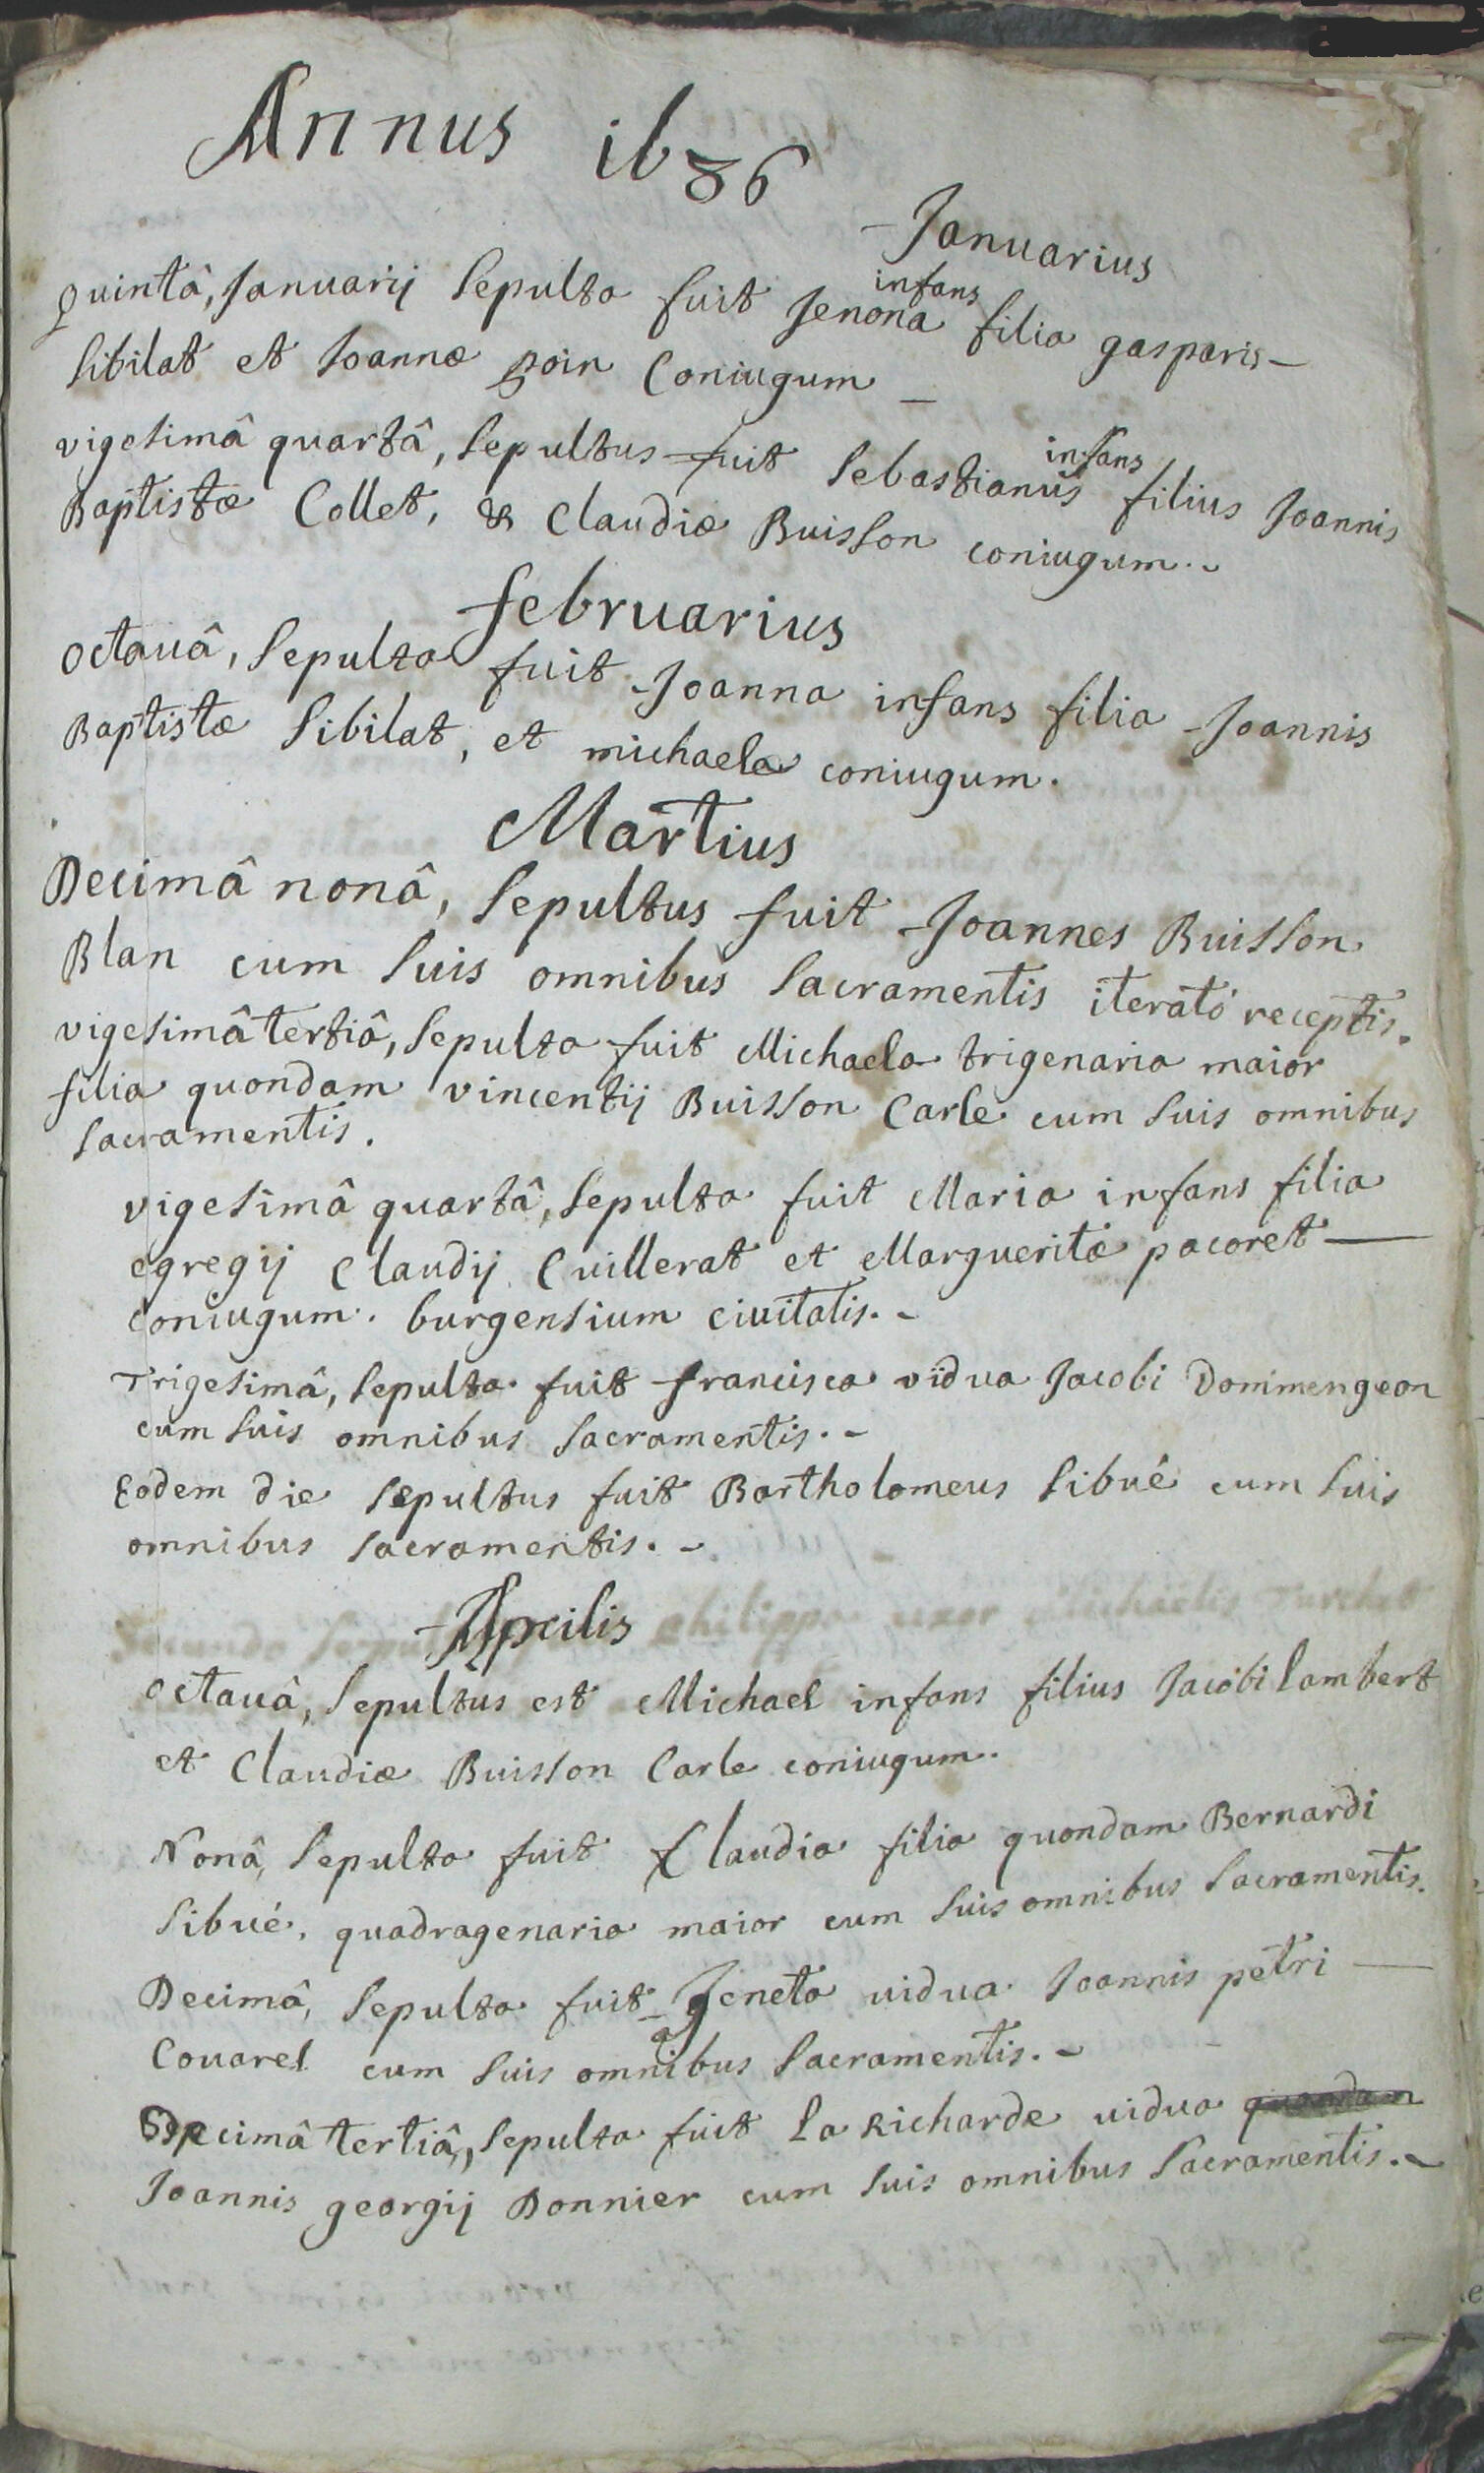 Annus 1686
Januarius
Quintâ, Januarij Sepulta fuit Jenona infans filia gasparis
Sibilat et Joannæ goin Coniugum
vigesimâ quartâ, Sepultus fuit Sebastianus infans filius Joannis
Baptistæ Collet, & Claudiæ Buisson coniugum.
februarius
Octauâ, Sepulta fuit Joanna infans filia Joannis
Baptistæ Sibilat, et michaelæ coniugum.
Martius
Decimâ nonâ, Sepultus fuit Joannes Buisson
Blan cum Suis omnibus Sacramentis iterato receptis.
vigesimâ tertiâ, Sepulta fuit Michaela trigenaria maior
filia quondam vincentij Buisson Carle cum Suis omnibus
Sacramentis.
vigesimâ quartâ, Sepulta fuit Maria infans filia
egregij Claudij Cuillerat et Margueritæ pacoret
coniugum. burgensium ciuitatis.
Trigesimâ, Sepulta fuit francisca vidua Jacobi Dommengeon
cum Suis omnibus Sacramentis.
Eodem die Sepultus fuit Bartholomeus Sibué cum Suis
omnibus Sacramentis.
Aprilis
Octauâ, Sepultus est Michael infans filius Jacobi Lambert
et Claudiæ Buisson Carle coniugum.
Nonâ, Sepulta fuit Claudia filia quondam Bernardi
Sibué, quadragenaria maior cum Suis omnibus Sacramentis.
Decimâ, Sepulta fuit Jeneta uidua Joannis petri
Couarel cum Suis omnibus Sacramentis.
Decimâ tertiâ, Sepulta fuit La Richarde uidua quondam
Joannis georgij Donnier cum Suis omnibus Sacramentis.